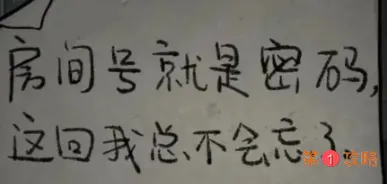 房间号就是密码,
这回我总不会忘了.
第1攻略